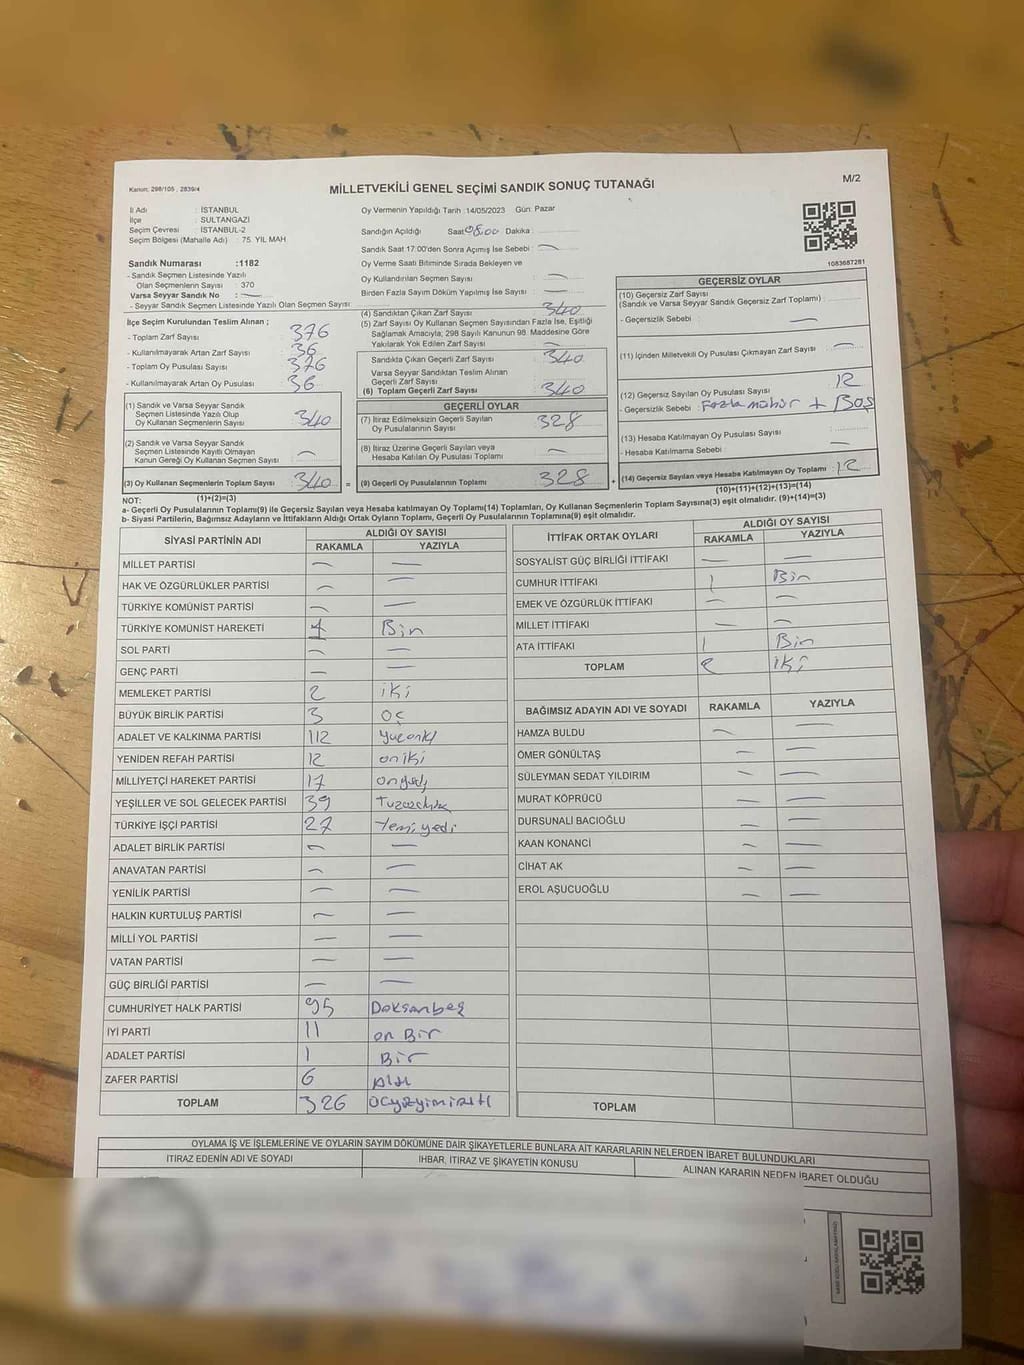 Kanun: 298/105 , 2839/4
MİLLETVEKİLİ GENEL SEÇİMİ SANDIK SONUÇ TUTANAĞI
M/2
İl Adı : İSTANBUL
İlçe : SULTANGAZİ
Seçim Çevresi : İSTANBUL-2
Seçim Bölgesi (Mahalle Adı) : 75. YIL MAH
Sandık Numarası :1182
- Sandık Seçmen Listesinde Yazılı
Olan Seçmenlerin Sayısı : 370
Varsa Seyyar Sandık No : —
- Seyyar Sandık Seçmen Listesinde Yazılı Olan Seçmen Sayısı
Oy Vermenin Yapıldığı Tarih :14/05/2023 Gün: Pazar
Sandığın Açıldığı Saat 08.00 Dakika :
Sandık Saat 17:00'den Sonra Açımış İse Sebebi : —
Oy Verme Saati Bitiminde Sırada Bekleyen ve
Oy Kullandırılan Seçmen Sayısı : —
Birden Fazla Sayım Döküm Yapılmış İse Sayısı : —
1083687281
İlçe Seçim Kurulundan Teslim Alınan ;
- Toplam Zarf Sayısı : 376
- Kullanılmayarak Artan Zarf Sayısı : 36
- Toplam Oy Pusulası Sayısı : 376
- Kullanılmayarak Artan Oy Pusulası : 36
(1) Sandık ve Varsa Seyyar Sandık
Seçmen Listesinde Yazılı Olup
Oy Kullanan Seçmenlerin Sayısı : 340
(2) Sandık ve Varsa Seyyar Sandık
Seçmen Listesinde Kayıtlı Olmayan
Kanun Gereği Oy Kullanan Seçmen Sayısı : —
(3) Oy Kullanan Seçmenlerin Toplam Sayısı : 340 =
(1)+(2)=(3)
(4) Sandıktan Çıkan Zarf Sayısı : 340
(5) Zarf Sayısı Oy Kullanan Seçmen Sayısından Fazla İse, Eşitliği
Sağlamak Amacıyla; 298 Sayılı Kanunun 98. Maddesine Göre
Yakılarak Yok Edilen Zarf Sayısı : —
Sandıkta Çıkan Geçerli Zarf Sayısı : 340
Varsa Seyyar Sandıktan Teslim Alınan
Geçerli Zarf Sayısı :
(6) Toplam Geçerli Zarf Sayısı : 340
GEÇERLİ OYLAR
(7) İtiraz Edilmeksizin Geçerli Sayılan
Oy Pusulalarının Sayısı : 328
(8) İtiraz Üzerine Geçerli Sayılan veya
Hesaba Katılan Oy Pusulası Toplamı : —
(9) Geçerli Oy Pusulalarının Toplamı : 328 +
GEÇERSİZ OYLAR
(10) Geçersiz Zarf Sayısı
(Sandık ve Varsa Seyyar Sandık Geçersiz Zarf Toplamı) :
- Geçersizlik Sebebi : —
(11) İçinden Milletvekili Oy Pusulası Çıkmayan Zarf Sayısı : —
(12) Geçersiz Sayılan Oy Pusulası Sayısı : 12
- Geçersizlik Sebebi : Fazla mühür + Boş
(13) Hesaba Katılmayan Oy Pusulası Sayısı :
- Hesaba Katılmama Sebebi : —
(14) Geçersiz Sayılan veya Hesaba Katılmayan Oy Toplamı : 12
(10)+(11)+(12)+(13)=(14)
NOT:
a- Geçerli Oy Pusulaları Toplamı(9) ile Geçersiz Sayılan veya Hesaba katılmayan Oy Toplamı(14) Toplamları, Oy Kullanan Seçmenlerin Toplam Sayısına(3) eşit olmalıdır. (9)+(14)=(3)
b- Siyasi Partilerin, Bağımsız Adayların ve İttifakların Aldığı Ortak Oyların Toplamı, Geçerli Oy Pusulalarının Toplamına(9) eşit olmalıdır.
SİYASİ PARTİNİN ADI ALDIĞI OY SAYISI
RAKAMLA YAZIYLA
MİLLET PARTİSİ — —
HAK VE ÖZGÜRLÜKLER PARTİSİ — —
TÜRKİYE KOMÜNİST PARTİSİ — —
TÜRKİYE KOMÜNİST HAREKETİ 1 Bin
SOL PARTİ — —
GENÇ PARTİ — —
MEMLEKET PARTİSİ 2 iki
BÜYÜK BİRLİK PARTİSİ 3 üç
ADALET VE KALKINMA PARTİSİ 112
YENİDEN REFAH PARTİSİ 12 oniki
MİLLİYETÇİ HAREKET PARTİSİ 17
YEŞİLLER VE SOL GELECEK PARTİSİ 39
TÜRKİYE İŞÇİ PARTİSİ 27
ADALET BİRLİK PARTİSİ — —
ANAVATAN PARTİSİ — —
YENİLİK PARTİSİ — —
HALKIN KURTULUŞ PARTİSİ — —
MİLLİ YOL PARTİSİ — —
VATAN PARTİSİ — —
GÜÇ BİRLİĞİ PARTİSİ — —
CUMHURİYET HALK PARTİSİ 95 Doksanbeş
İYİ PARTİ 11 on Bir
ADALET PARTİSİ 1 Bir
ZAFER PARTİSİ 6 Altı
TOPLAM 326
İTTİFAK ORTAK OYLARI ALDIĞI OY SAYISI
RAKAMLA YAZIYLA
SOSYALİST GÜÇ BİRLİĞİ İTTİFAKI — —
CUMHUR İTTİFAKI 1 Bin
EMEK VE ÖZGÜRLÜK İTTİFAKI — —
MİLLET İTTİFAKI — —
ATA İTTİFAKI 1 Bin
TOPLAM 2 iki
BAĞIMSIZ ADAYIN ADI VE SOYADI RAKAMLA YAZIYLA
HAMZA BULDU — —
ÖMER GÖNÜLTAŞ — —
SÜLEYMAN SEDAT YILDIRIM — —
MURAT KÖPRÜCÜ — —
DURSUNALİ BACIOĞLU — —
KAAN KONANCİ — —
CİHAT AK — —
EROL AŞUCUOĞLU — —
TOPLAM
OYLAMA İŞ VE İŞLEMLERİNE VE OYLARIN SAYIM DÖKÜMÜNE DAİR ŞİKAYETLERLE BUNLARA AİT KARARLARIN NELERDEN İBARET BULUNDUKLARI
İTİRAZ EDENİN ADI VE SOYADI İHBAR, İTİRAZ VE ŞİKAYETİN KONUSU ALINAN KARARIN NEDEN İBARET OLDUĞU